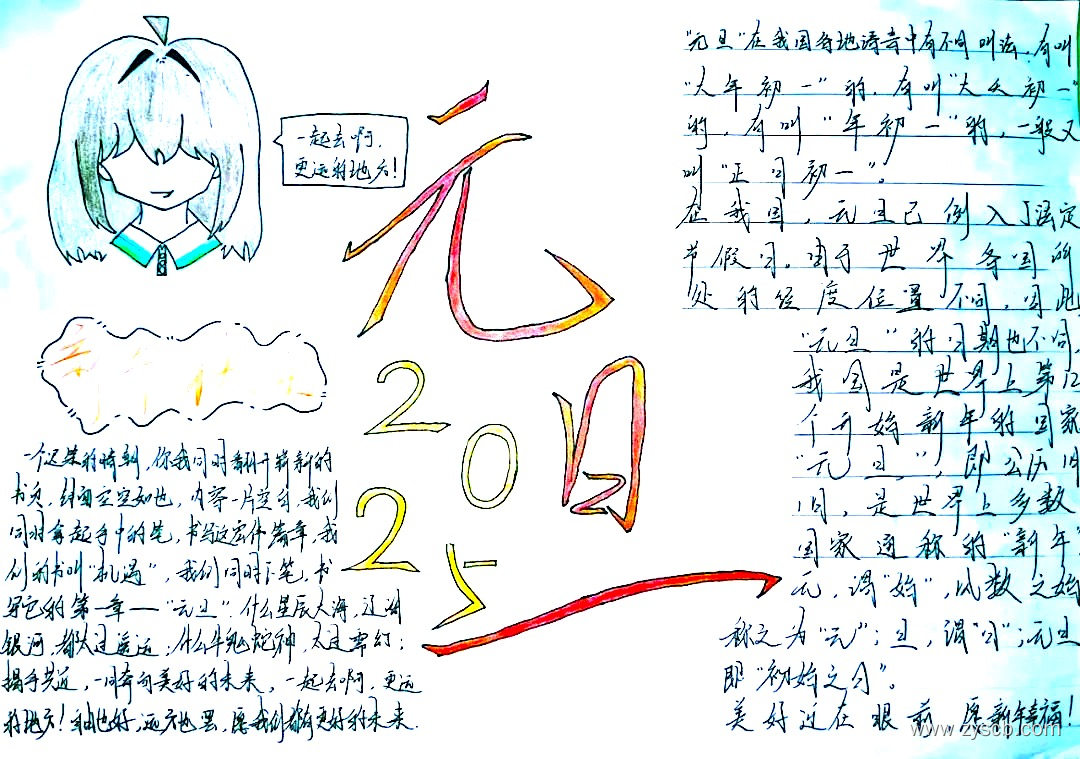 一起去啊,
更远的地方!
元旦
2025
一个迟来的时刻,你我同时翻开崭新的
书页,封面空空如也,内容一片空白,我们
同时拿起手中的笔,书写这宏伟篇章,我
们的书叫“机遇”,我们同时下笔,书
写它的第一章——“元旦”.什么星辰大海,辽阔
银河,都太过遥远;什么牛鬼蛇神,太过梦幻;
携手共进,一同奔向美好的未来,一起去啊,更远
的地方!也好,远方也罢,愿我们都有更好的未来.
“元旦”在我国各地语言中有不同叫法,有叫
“大年初一”的,有叫“大天初一”
的,有叫“年初一”的,一般又
叫“正月初一”。
在我国,元旦已例入了法定
节假日。由于世界各国所
处的经度位置不同,因此
“元旦”的日期也不同,
我国是世界上第12
个开始新年的国家
“元旦”,即公历1月
1日,是世界上多数
国家通称的“新年”
元,谓“始”,凡数之始
称之为“元”;旦,谓“日”;元旦
即“初始之日”。
美好近在眼前 愿新年幸福!
www.zyscb.com